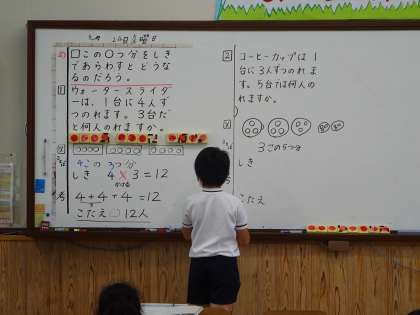 □この○つ分をしき
であらわすとどうな
るのだろう。
1 ウォータースライダ
ーは、1台に4人ず
つのれます。3台だ
と何人のれますか。
4この3つ分
しき 4×3=12
かける
4+4+4=12
こたえ 12人
2 コーヒーカップは1
台に3人ずつのれま
す。5台では何人の
れますか。
3この5つ分
しき
こたえ